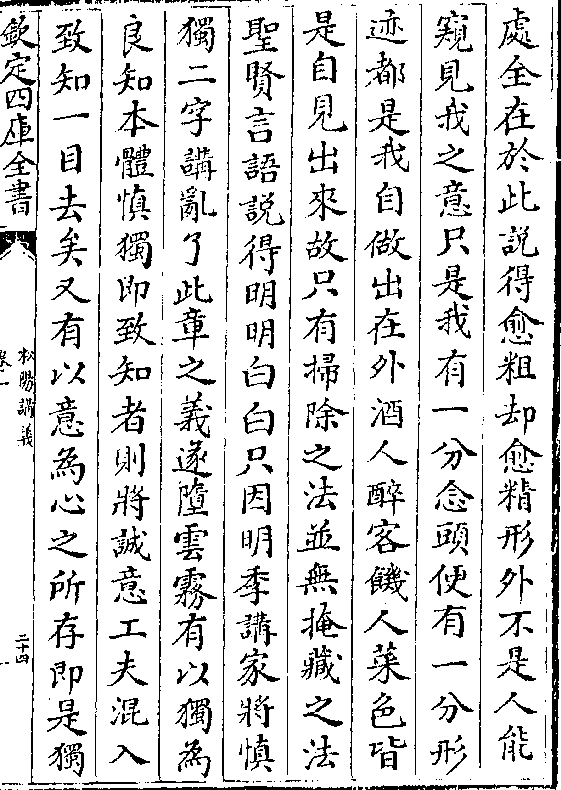 處全在於此說得愈粗却愈精形外不是人能
窺見我之意只是我有一分念頭便有一分形
迹都是我自做出在外酒人醉客饑人菜色皆
是自見出來故只有掃除之法並無掩藏之法
聖賢言語說得明明白白只因明季講家將慎
獨二字講亂了此章之義遂墮雲霧有以獨為
良知本體慎獨即致知者則將誠意工夫混入
致知一目去矣又有以意為心之所存即是獨
欽定四庫全書
松陽講義
卷一
二十四